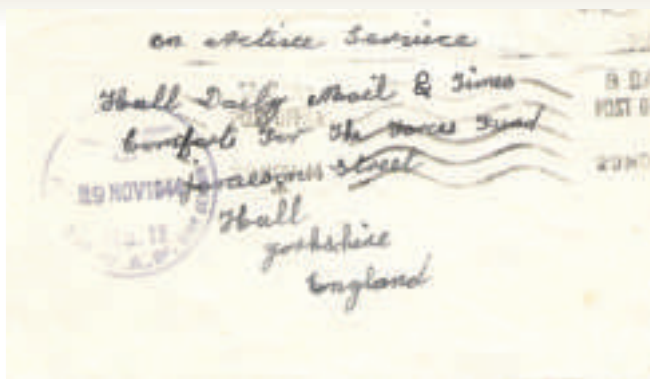 on Active Service
Hull Daily Mail & Times
Comforts For The Forces Fund
Jameson Street
Hull
Yorkshire
England
29 NOV 1944